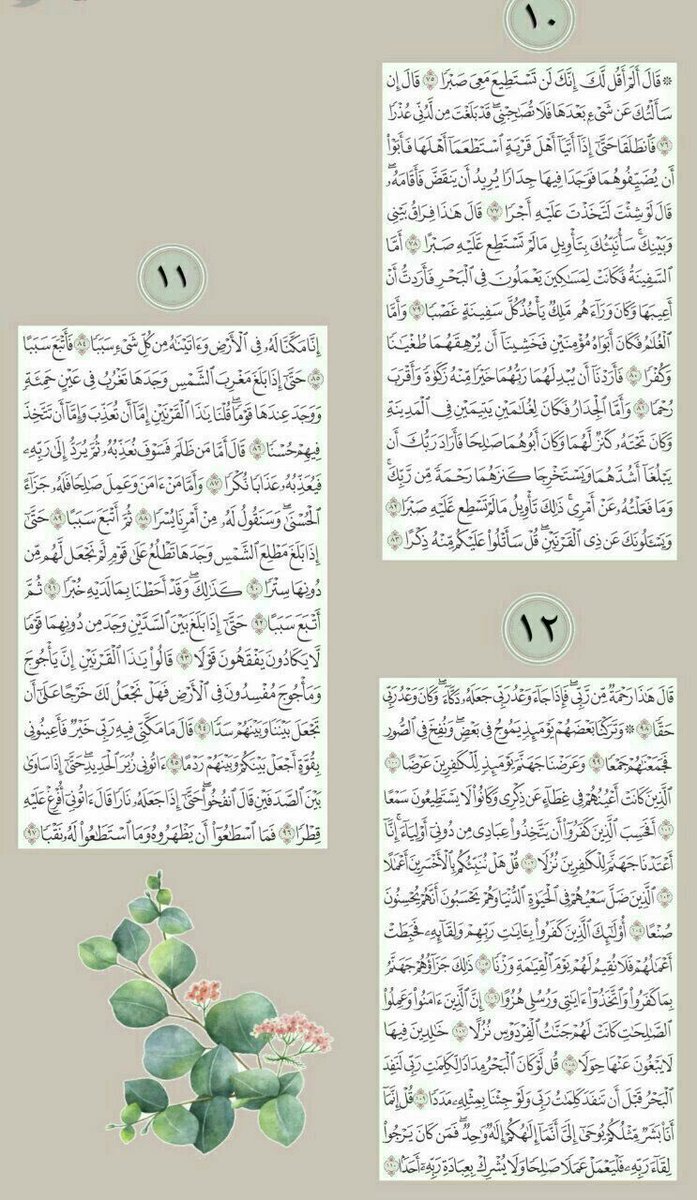 ١٠
* قَالَ أَلَمْ أَقُل لَّكَ إِنَّكَ لَن تَسْتَطِيعَ مَعِيَ صَبْرًا ٧٥ قَالَ إِن
سَأَلْتُكَ عَن شَىْءٍۭ بَعْدَهَا فَلَا تُصَٰحِبْنِى ۖ قَدْ بَلَغْتَ مِن لَّدُنِّى عُذْرًا
٧٦ فَٱنطَلَقَا حَتَّىٰٓ إِذَآ أَتَيَآ أَهْلَ قَرْيَةٍ ٱسْتَطْعَمَآ أَهْلَهَا فَأَبَوْا۟
أَن يُضَيِّفُوهُمَا فَوَجَدَا فِيهَا جِدَارًا يُرِيدُ أَن يَنقَضَّ فَأَقَامَهُۥ ۖ
قَالَ لَوْ شِئْتَ لَتَّخَذْتَ عَلَيْهِ أَجْرًا ٧٧ قَالَ هَٰذَا فِرَاقُ بَيْنِى
وَبَيْنِكَ ۚ سَأُنَبِّئُكَ بِتَأْوِيلِ مَا لَمْ تَسْتَطِع عَّلَيْهِ صَبْرًا ٧٨ أَمَّا
ٱلسَّفِينَةُ فَكَانَتْ لِمَسَٰكِينَ يَعْمَلُونَ فِى ٱلْبَحْرِ فَأَرَدتُّ أَنْ
أَعِيبَهَا وَكَانَ وَرَآءَهُم مَّلِكٌ يَأْخُذُ كُلَّ سَفِينَةٍ غَصْبًا ٧٩ وَأَمَّا
ٱلْغُلَٰمُ فَكَانَ أَبَوَاهُ مُؤْمِنَيْنِ فَخَشِينَآ أَن يُرْهِقَهُمَا طُغْيَٰنًا
وَكُفْرًا ٨٠ فَأَرَدْنَآ أَن يُبْدِلَهُمَا رَبُّهُمَا خَيْرًا مِّنْهُ زَكَوٰةً وَأَقْرَبَ
رُحْمًا ٨١ وَأَمَّا ٱلْجِدَارُ فَكَانَ لِغُلَٰمَيْنِ يَتِيمَيْنِ فِى ٱلْمَدِينَةِ
وَكَانَ تَحْتَهُۥ كَنزٌ لَّهُمَا وَكَانَ أَبُوهُمَا صَٰلِحًا فَأَرَادَ رَبُّكَ أَن
يَبْلُغَآ أَشُدَّهُمَا وَيَسْتَخْرِجَا كَنزَهُمَا رَحْمَةً مِّن رَّبِّكَ ۚ
وَمَا فَعَلْتُهُۥ عَنْ أَمْرِى ۚ ذَٰلِكَ تَأْوِيلُ مَا لَمْ تَسْطِع عَّلَيْهِ صَبْرًا ٨٢
وَيَسْـَٔلُونَكَ عَن ذِى ٱلْقَرْنَيْنِ ۖ قُلْ سَأَتْلُوا۟ عَلَيْكُم مِّنْهُ ذِكْرًا ٨٣
١١
إِنَّا مَكَّنَّا لَهُۥ فِى ٱلْأَرْضِ وَءَاتَيْنَٰهُ مِن كُلِّ شَىْءٍ سَبَبًا ٨٤ فَأَتْبَعَ سَبَبًا
٨٥ حَتَّىٰٓ إِذَا بَلَغَ مَغْرِبَ ٱلشَّمْسِ وَجَدَهَا تَغْرُبُ فِى عَيْنٍ حَمِئَةٍ
وَوَجَدَ عِندَهَا قَوْمًا ۗ قُلْنَا يَٰذَا ٱلْقَرْنَيْنِ إِمَّآ أَن تُعَذِّبَ وَإِمَّآ أَن تَتَّخِذَ
فِيهِمْ حُسْنًا ٨٦ قَالَ أَمَّا مَن ظَلَمَ فَسَوْفَ نُعَذِّبُهُۥ ثُمَّ يُرَدُّ إِلَىٰ رَبِّهِۦ
فَيُعَذِّبُهُۥ عَذَابًا نُّكْرًا ٨٧ وَأَمَّا مَنْ ءَامَنَ وَعَمِلَ صَٰلِحًا فَلَهُۥ جَزَآءً
ٱلْحُسْنَىٰ ۖ وَسَنَقُولُ لَهُۥ مِنْ أَمْرِنَا يُسْرًا ٨٨ ثُمَّ أَتْبَعَ سَبَبًا ٨٩ حَتَّىٰٓ
إِذَا بَلَغَ مَطْلِعَ ٱلشَّمْسِ وَجَدَهَا تَطْلُعُ عَلَىٰ قَوْمٍ لَّمْ نَجْعَل لَّهُم مِّن
دُونِهَا سِتْرًا ٩٠ كَذَٰلِكَ ۖ وَقَدْ أَحَطْنَا بِمَا لَدَيْهِ خُبْرًا ٩١ ثُمَّ
أَتْبَعَ سَبَبًا ٩٢ حَتَّىٰٓ إِذَا بَلَغَ بَيْنَ ٱلسَّدَّيْنِ وَجَدَ مِن دُونِهِمَا قَوْمًا
لَّا يَكَادُونَ يَفْقَهُونَ قَوْلًا ٩٣ قَالُوا۟ يَٰذَا ٱلْقَرْنَيْنِ إِنَّ يَأْجُوجَ
وَمَأْجُوجَ مُفْسِدُونَ فِى ٱلْأَرْضِ فَهَلْ نَجْعَلُ لَكَ خَرْجًا عَلَىٰٓ أَن
تَجْعَلَ بَيْنَنَا وَبَيْنَهُمْ سَدًّا ٩٤ قَالَ مَا مَكَّنِّى فِيهِ رَبِّى خَيْرٌ فَأَعِينُونِى
بِقُوَّةٍ أَجْعَلْ بَيْنَكُمْ وَبَيْنَهُمْ رَدْمًا ٩٥ ءَاتُونِى زُبَرَ ٱلْحَدِيدِ ۖ حَتَّىٰٓ إِذَا سَاوَىٰ
بَيْنَ ٱلصَّدَفَيْنِ قَالَ ٱنفُخُوا۟ ۖ حَتَّىٰٓ إِذَا جَعَلَهُۥ نَارًا قَالَ ءَاتُونِىٓ أُفْرِغْ عَلَيْهِ
قِطْرًا ٩٦ فَمَا ٱسْطَٰعُوٓا۟ أَن يَظْهَرُوهُ وَمَا ٱسْتَطَٰعُوا۟ لَهُۥ نَقْبًا ٩٧
١٢
قَالَ هَٰذَا رَحْمَةٌ مِّن رَّبِّى ۖ فَإِذَا جَآءَ وَعْدُ رَبِّى جَعَلَهُۥ دَكَّآءَ ۖ وَكَانَ وَعْدُ رَبِّى
حَقًّا ٩٨ * وَتَرَكْنَا بَعْضَهُمْ يَوْمَئِذٍ يَمُوجُ فِى بَعْضٍ ۖ وَنُفِخَ فِى ٱلصُّورِ
فَجَمَعْنَٰهُمْ جَمْعًا ٩٩ وَعَرَضْنَا جَهَنَّمَ يَوْمَئِذٍ لِّلْكَٰفِرِينَ عَرْضًا ١٠٠
ٱلَّذِينَ كَانَتْ أَعْيُنُهُمْ فِى غِطَآءٍ عَن ذِكْرِى وَكَانُوا۟ لَا يَسْتَطِيعُونَ سَمْعًا
١٠١ أَفَحَسِبَ ٱلَّذِينَ كَفَرُوٓا۟ أَن يَتَّخِذُوا۟ عِبَادِى مِن دُونِىٓ أَوْلِيَآءَ ۚ إِنَّآ
أَعْتَدْنَا جَهَنَّمَ لِلْكَٰفِرِينَ نُزُلًا ١٠٢ قُلْ هَلْ نُنَبِّئُكُم بِٱلْأَخْسَرِينَ أَعْمَٰلًا
١٠٣ ٱلَّذِينَ ضَلَّ سَعْيُهُمْ فِى ٱلْحَيَوٰةِ ٱلدُّنْيَا وَهُمْ يَحْسَبُونَ أَنَّهُمْ يُحْسِنُونَ
صُنْعًا ١٠٤ أُو۟لَٰٓئِكَ ٱلَّذِينَ كَفَرُوا۟ بِـَٔايَٰتِ رَبِّهِمْ وَلِقَآئِهِۦ فَحَبِطَتْ
أَعْمَٰلُهُمْ فَلَا نُقِيمُ لَهُمْ يَوْمَ ٱلْقِيَٰمَةِ وَزْنًا ١٠٥ ذَٰلِكَ جَزَآؤُهُمْ جَهَنَّمُ
بِمَا كَفَرُوا۟ وَٱتَّخَذُوٓا۟ ءَايَٰتِى وَرُسُلِى هُزُوًا ١٠٦ إِنَّ ٱلَّذِينَ ءَامَنُوا۟ وَعَمِلُوا۟
ٱلصَّٰلِحَٰتِ كَانَتْ لَهُمْ جَنَّٰتُ ٱلْفِرْدَوْسِ نُزُلًا ١٠٧ خَٰلِدِينَ فِيهَا
لَا يَبْغُونَ عَنْهَا حِوَلًا ١٠٨ قُل لَّوْ كَانَ ٱلْبَحْرُ مِدَادًا لِّكَلِمَٰتِ رَبِّى لَنَفِدَ
ٱلْبَحْرُ قَبْلَ أَن تَنفَدَ كَلِمَٰتُ رَبِّى وَلَوْ جِئْنَا بِمِثْلِهِۦ مَدَدًا ١٠٩ قُلْ إِنَّمَآ
أَنَا۠ بَشَرٌ مِّثْلُكُمْ يُوحَىٰٓ إِلَىَّ أَنَّمَآ إِلَٰهُكُمْ إِلَٰهٌ وَٰحِدٌ ۖ فَمَن كَانَ يَرْجُوا۟
لِقَآءَ رَبِّهِۦ فَلْيَعْمَلْ عَمَلًا صَٰلِحًا وَلَا يُشْرِكْ بِعِبَادَةِ رَبِّهِۦٓ أَحَدًۢا ١١٠